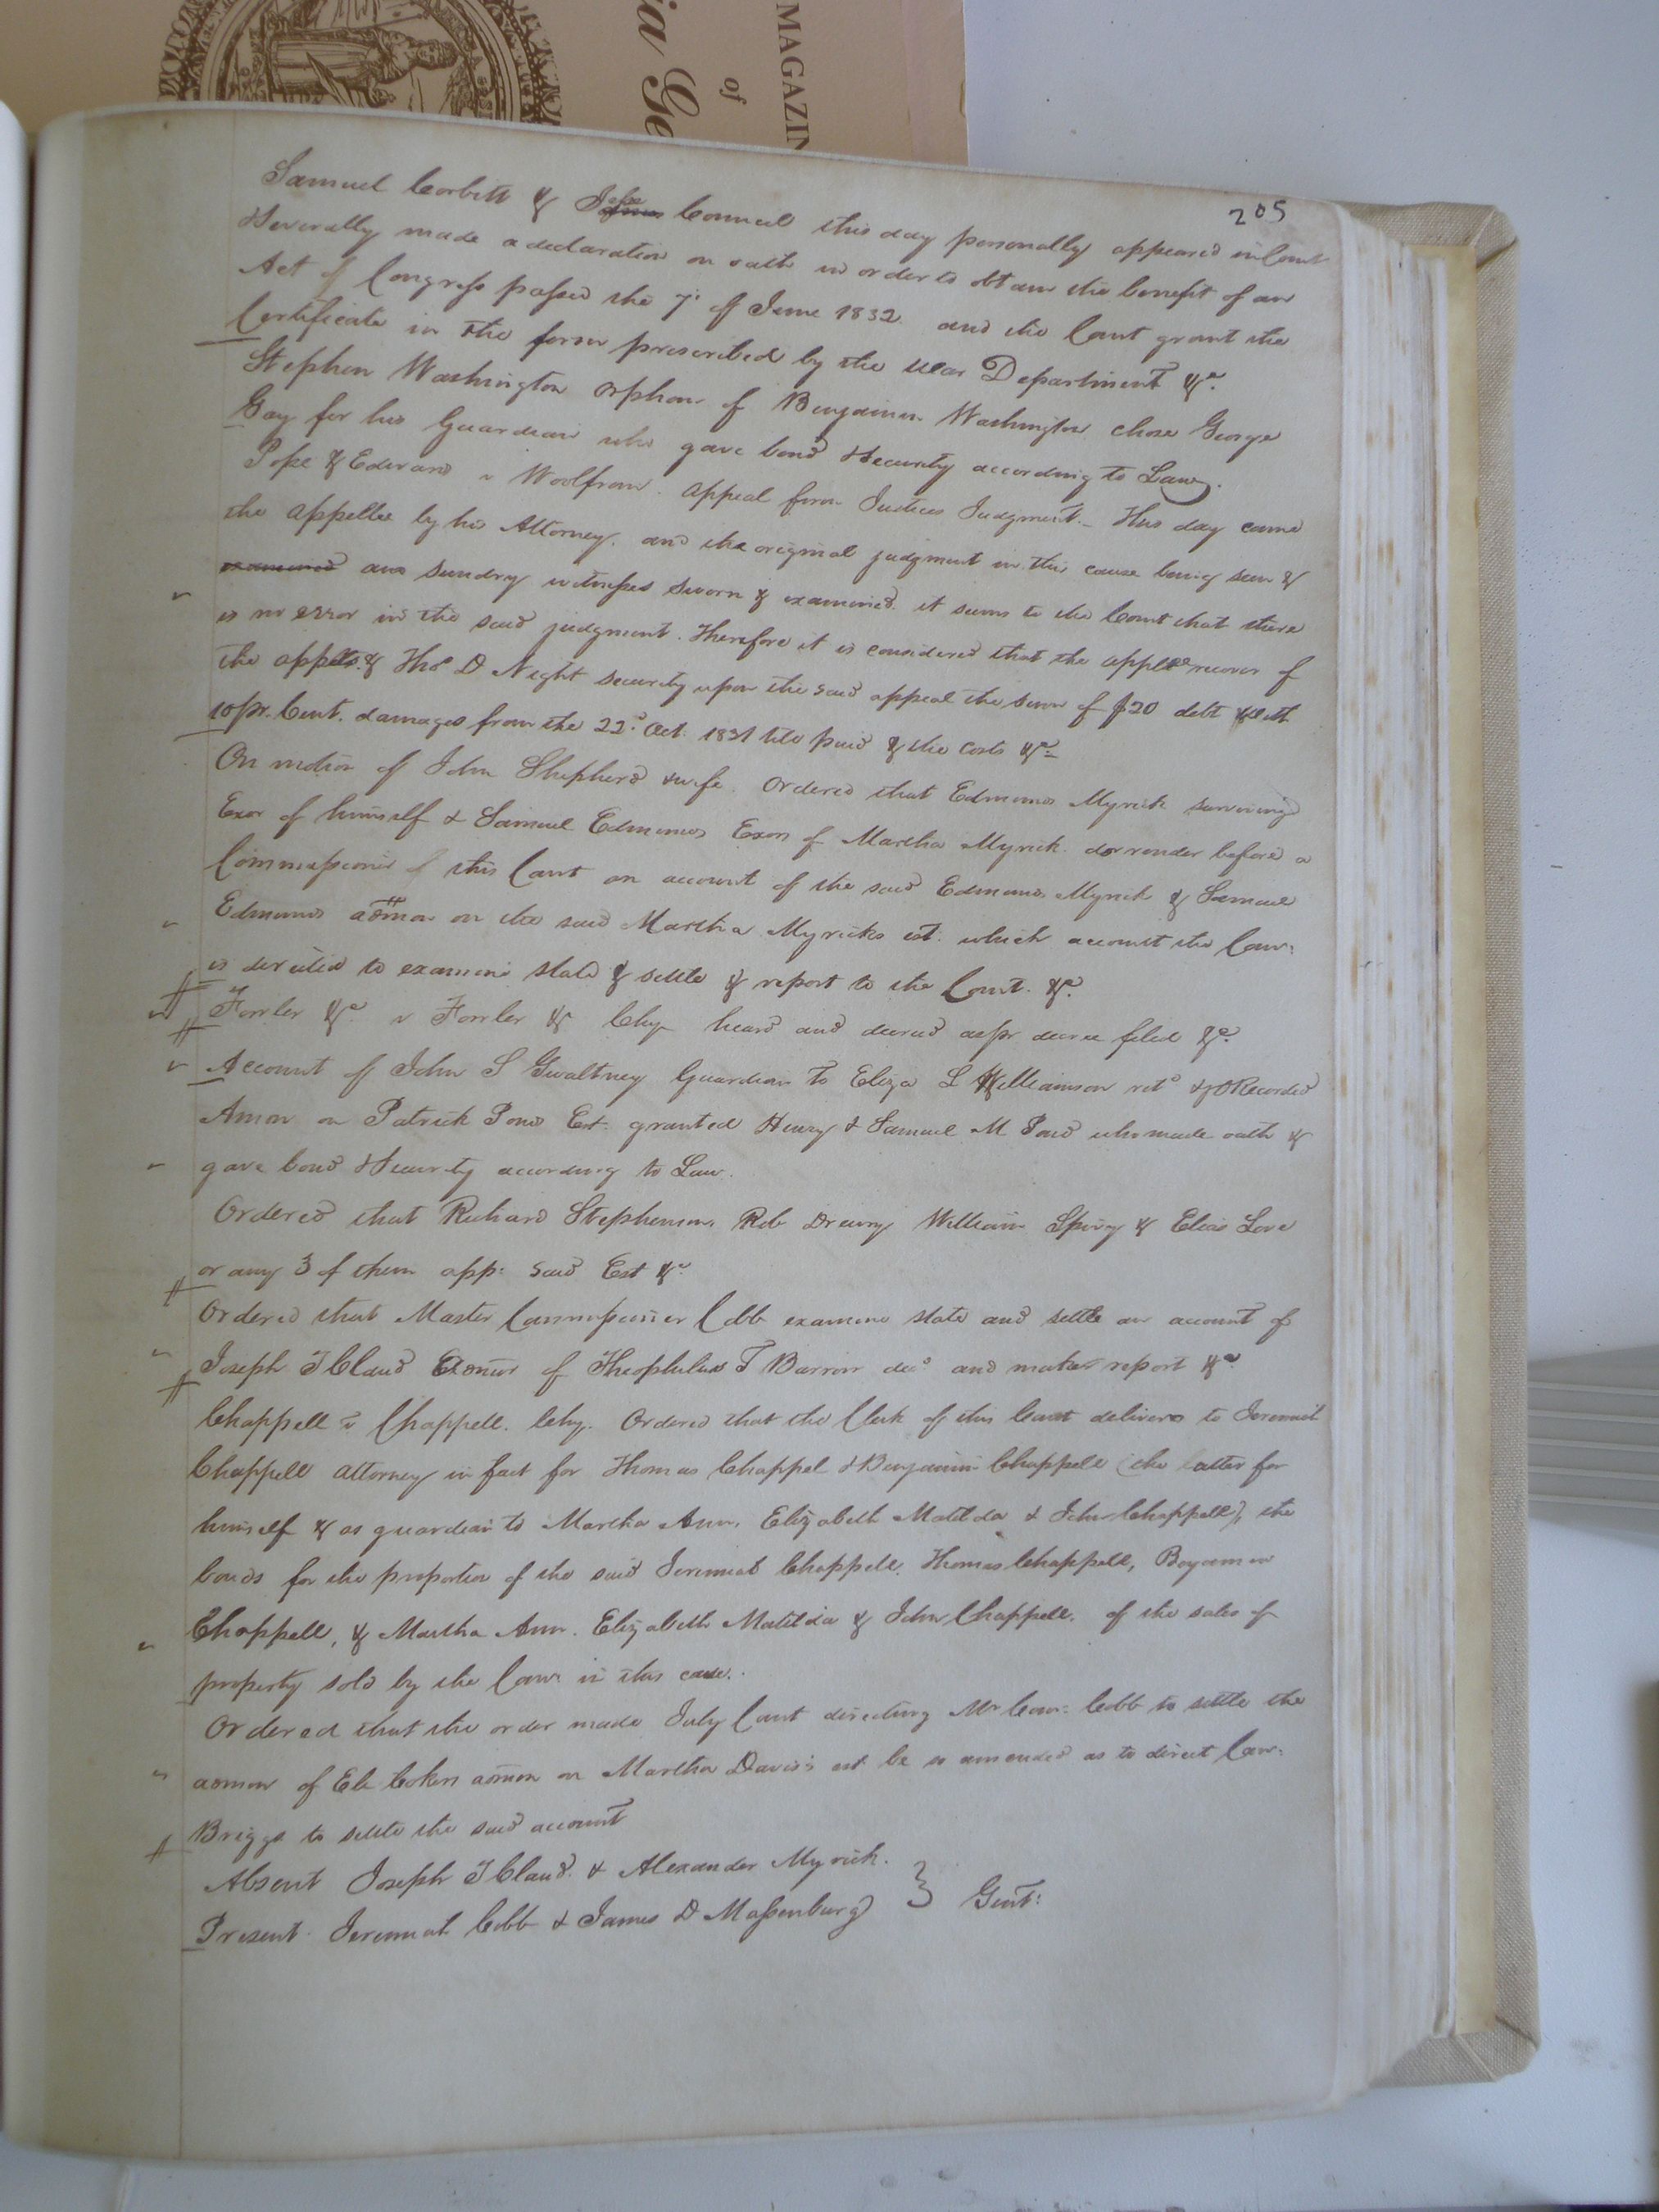 MAGAZIN
of
ia Ge
205
Samuel Corbitt & John Council this day personally appeared in Court
& Severally made a declaration on oath in order to obtain the benefit of an
Act of Congress passed the 7th of June 1832. and the Court grant the
Certificate in the form prescribed by the War Department &c.
Stephen Washington orphan of Benjamin Washington chose George
Gay for his Guardian who gave bond & security according to Law.
Pope & Edwards v Woolfrow. Appeal from Justices Judgment. This day came
the appellee by his Attorney. and the original judgment in this cause being seen &
examined and sundry witnesses sworn & examined. it seems to the Court that there
is no error in the said judgment. Therefore it is considered that the appllee recover of
the applts. & Thos D Night security upon the said appeal the sum of $20 debt with
10 pr. Cent. damages from the 22d Oct. 1831 till paid & the costs &c.
On motion of John Shepherd & wife. Ordered that Edmund Myrick surviving
Exor of himself & Samuel Edmunds Exors of Martha Myrick. do render before a
Commissioner of this Court an account of the said Edmund Myrick & Samuel
Edmunds admon on the said Martha Myricks est. which account the Com:
is directed to examine state & settle & report to the Court. &c.
Fowler &c v Fowler & Chy heard and decreed as pr decree filed &c.
Account of John S Gwaltney Guardian to Eliza L Williamson retd & O Recorded
Amon on Patrick Pond Est. granted Henry & Samuel M Pond who made oath &
gave bond & Security according to Law.
Ordered that Richard Stephenson, Rob Drewry William Spivy & Elias Love
or any 3 of them app: said Est &c
Ordered that Master Commissioner Cobb examine state and settle an account of
Joseph T Claud Exonor of Theophilus T Barron decd and make report &c
Chappell v Chappell. Chy. Ordered that the Clerk of this Court deliver to Jeremiah
Chappell attorney in fact for Thomas Chappel & Benjamin Chappell (the latter for
himself & as guardian to Martha Ann, Elizabeth Matilda & John Chappell), the
bonds for the proportion of the said Jeremiah Chappell, Thomas Chappell, Benjamin
Chappell, & Martha Ann. Elizabeth Matilda & John Chappell. of the sales of
property sold by the Com: in this case.
Ordered that the order made July Court directing Mr Com: Cobb to settle the
admon of Eli Coker admon on Martha Davis's est be so amended as to direct Com:
Briggs to settle the said account
Absent Joseph T Claud. & Alexander Myrick.
Present. Jeremiah Cobb & James D Massenburg } Gent: